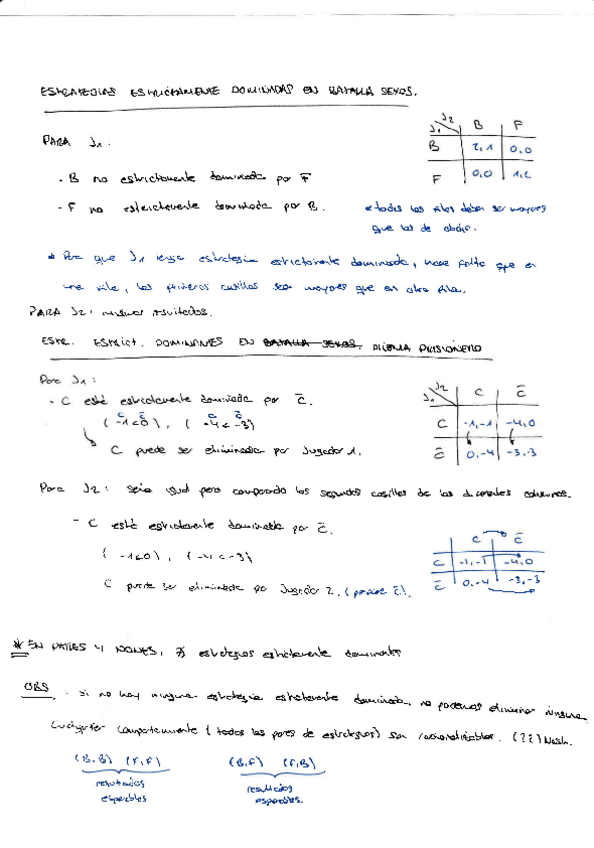 ESTRATEGIAS ESTRICTAMENTE DOMINADAS EN BATALLA SEXOS.
PARA J1:
J2
J1 B F
B 2,1 0,0
F 0,0 1,2
- B no estrictamente dominada por F
- F no estrictamente dominada por B.
* todas las filas deben ser mayores
que las de abajo.
* Para que J1 tenga estrategia estrictamente dominada, hace falta que en
una fila, las primeras casillas sean mayores que en otra fila.
PARA J2: mismos resultados.
ESTR. ESTRICT. DOMINANTES EN BATALLA SEXOS. DILEMA PRISIONERO
Para J1:
- C está estrictamente dominada por C̄.
C C̄ C C̄
(-1<0), (-4<-3)
C puede ser eliminada por Jugador 1.
J2
J1 C C̄
C -1,-1 -4,0
C̄ 0,-4 -3,-3
Para J2: sería igual pero comparando las segundas casillas de las diferentes columnas.
- C está estrictamente dominada por C̄.
(-1<0), (-4<-3)
C puede ser eliminada por Jugador 2. (porque C̄).
C C̄
C -1,-1 -4,0
C̄ 0,-4 -3,-3
* EN PARES Y NONES, ∄ estrategias estrictamente dominantes
OBS. Si no hay ninguna estrategia estrictamente dominada, no podemos eliminar ninguna.
Cualquier comportamiento (todos los pares de estrategias) son racionalizables. (??) Nash.
(B,B) (F,F) (B,F) (F,B)
resultados resultados
esperables esperables.